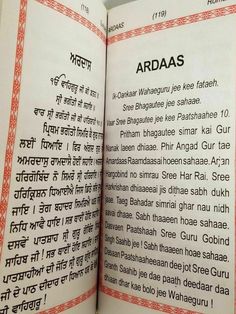 (118)
ARDAAS
ਅਰਦਾਸ
ੴ ਵਾਹਿਗੁਰੂ ਜੀ ਕੀ ਫਤਹ ॥
ਸ੍ਰੀ ਭਗੌਤੀ ਜੀ ਸਹਾਇ ॥
ਵਾਰ ਸ੍ਰੀ ਭਗੌਤੀ ਜੀ ਕੀ
ਪ੍ਰਿਥਮ ਭਗੌਤੀ ਸਿਮਰਿ ਕੈ ਗੁਰ
ਲਈਂ ਧਿਆਇ । ਫਿਰ ਅੰਗਦ
ਅਮਰਦਾਸੁ ਰਾਮਦਾਸੈ ਹੋਈਂ ਸਹਾਇ ।
ਹਰਿਗੋਬਿੰਦ ਨੋ ਸਿਮਰੌ ਸ੍ਰੀ
ਹਰਿਕ੍ਰਿਸ਼ਨ ਧਿਆਈਐ ਜਿਸ ਡਿਠੇ
ਜਾਇ । ਤੇਗ ਬਹਾਦਰ ਸਿਮਰਿਐ
ਆਵੈ ਧਾਇ । ਸਭ ਥਾਈਂ ਹੋਇ
ਦਸਵੇਂ ਪਾਤਸ਼ਾਹ ਸ੍ਰੀ ਗੁਰੂ
ਸਾਹਿਬ ਜੀ ! ਸਭ ਥਾਈਂ
ਪਾਤਸ਼ਾਹੀਆਂ ਦੀ ਜੋਤਿ ਸ੍ਰੀ ਗੁਰੂ
ਜੀ ਦੇ ਪਾਠ ਦੀਦਾਰ ਦਾ ਧਿਆਨ
ਜੀ ਵਾਹਿਗੁਰੂ !
(119)
ARDAAS
Ik-Oankaar Wahaeguru jee kee fateh.
Sree Bhagautee jee sahaae.
Vaar Sree Bhagautee jee kee Paatshaahee 10.
Pritham bhagautee simar kai Gur
Nanak laeen dhiaae. Phir Angad Gur tae
Amardaas Raamdaasai hoaeen sahaae. Arjan
Hargobind no simrau Sree Har Rai. Sree
Harkrishan dhiaaeeai jis dithae sabh dukh
jaae. Taeg Bahadar simriai ghar nau nidh
aavai dhaae. Sabh thaaeen hoae sahaae.
Dasvaen Paatshaah Sree Guru Gobind
Singh Saahib jee ! Sabh thaaeen hoae sahaae.
Dasaan Paatshaaheeaaean dee jot Sree Guru
Granth Saahib jee dae paath deedaar daa
dhiaan dhar kae bolo jee Wahaeguru !